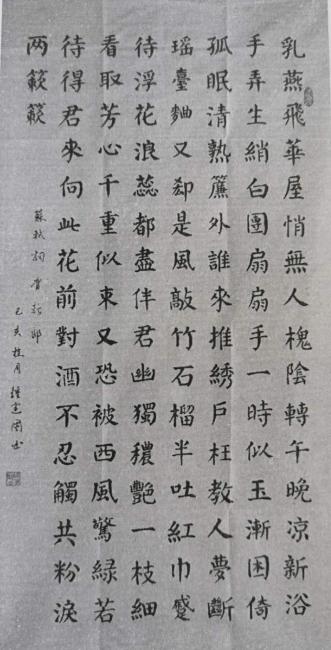 乳燕飛華屋悄無人槐陰轉午晚凉新浴
手弄生綃白團扇扇手一時似玉漸困倚
孤眠清熟簾外誰來推綉户枉教人夢斷
瑶臺麯又卻是風敲竹石榴半吐紅巾蹙
待浮花浪蕊都盡伴君幽獨穠艷一枝細
看取芳心千重似束又恐被西風驚緑若
待得君來向此花前對酒不忍觸共粉淚
两簌簌
蘇軾詞賀新郎
己亥桂月书